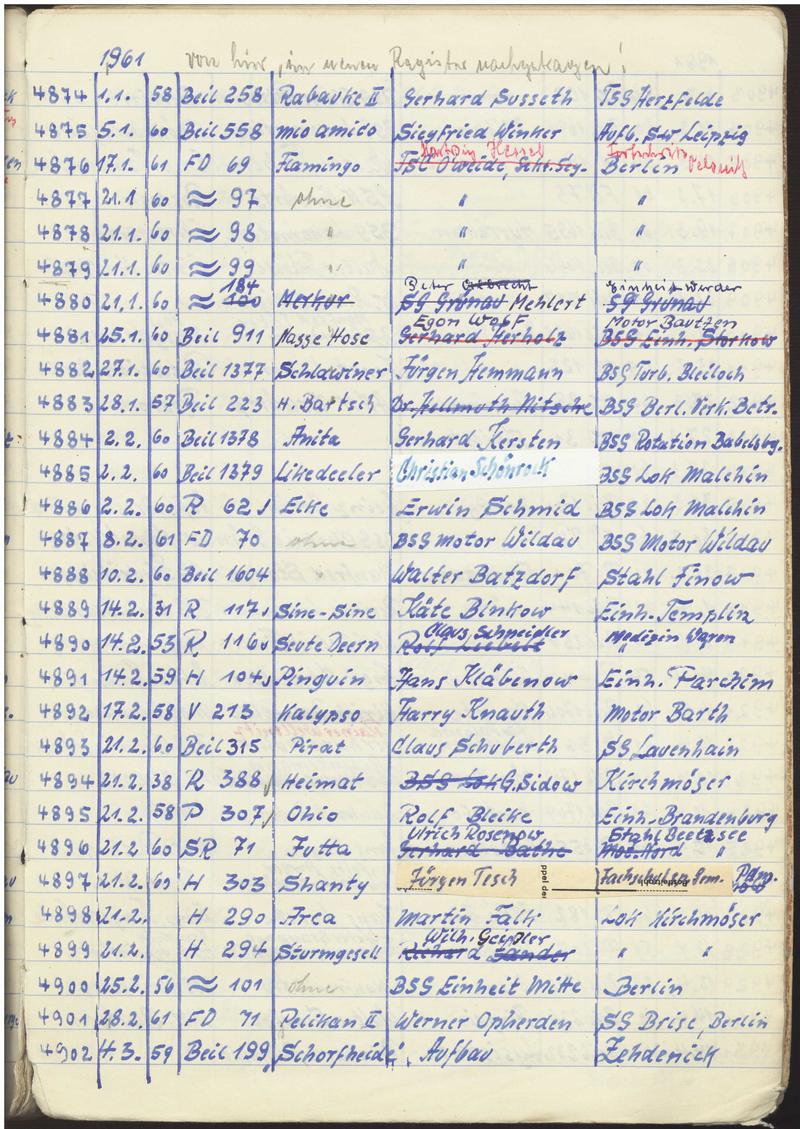 1961 von hier, im neuen Register nachgetragen!
4874 1.1. 58 Beil 258 Rabauke II Gerhard Susseth TSG Herzfelde
4875 5.1. 60 Beil 558 mio amico Siegfried Winker Aufb. Sw Leipzig
Hartwig Hessel
4876 17.1. 61 FD 69 Flamingo TSC O'weide, Schr. Seg. Berlin Oelsnitz
4877 21.1 60 ≈ 97 ohne " "
4878 21.1. 60 ≈ 98 " " "
4879 21.1. 60 ≈ 99 " " "
184 Peter Einheit Werder
4880 21.1. 60 ≈ 100 Merkur SG Grünau Mehlert SG Grünau
Egon Wolf Motor Bautzen
4881 25.1. 60 Beil 911 Nasse Hose Gerhard Herholz BSG Einh. Storkow
4882 27.1. 60 Beil 1377 Schlawiner Jürgen Hemmann BSG Turb. Bleiloch
4883 28.1. 57 Beil 223 H. Bartsch Dr. Hellmuth Nitsche BSG Berl. Verk. Betr.
4884 2.2. 60 Beil 1378 Anita Gerhard Kersten BSG Rotation Babelsbg.
4885 2.2. 60 Beil 1379 Likedeeler Christian Schönrock BSG Lok Malchin
4886 2.2. 60 R 62 Elke Erwin Schmid BSG Lok Malchin
4887 8.2. 61 FD 70 ohne BSG Motor Wildau BSG Motor Wildau
4888 10.2. 60 Beil 1604 Walter Batzdorf Stahl Finow
4889 14.2. 31 R 117 Sine-Sine Käte Binkow Einh. Templin
Claus Schneidler Medizin Waren
4890 14.2. 53 R 116 Seute Deern Rolf "
4891 14.2. 59 H 104 Pinguin Hans Kläbenow Einh. Parchim
4892 17.2. 58 V 213 Kalypso Harry Knauth Motor Barth
4893 21.2. 60 Beil 315 Pirat Claus Schuberth SG Lauenhain
4894 21.2. 38 R 388 Heimat BSG Lok G. Sidow Kirchmöser
4895 21.2. 58 P 307 Ohio Rolf Bleike Einh. Brandenburg
Ulrich Rosenow Stahl Beetzsee
4896 21.2 60 SR 71 Jutta Gerhard Bathe Mot. Nord "
4897 21.2. 60 H 303 Shanty Jürgen Tesch Sem. Pdm.
4898 21.2. H 290 Arca Martin Falk Lok Kirchmöser
Wilh. Geißler
4899 21.2. H 294 Sturmgesell Richard Sander " "
4900 25.2. 56 ≈ 101 ohne BSG Einheit Mitte Berlin
4901 28.2. 61 FD 71 Pelikan II Werner Opherden SG Brise, Berlin
4902 4.3. 59 Beil 199 Schorfheide Aufbau Zehdenick